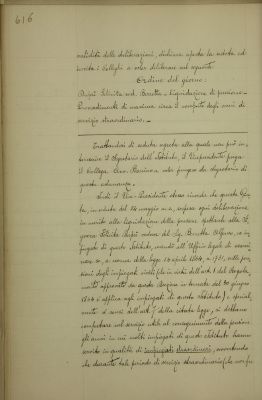 616
validità delle deliberazioni, dichiara aperta la seduta ed
invita i Colleghi a voler deliberare sul seguente
Ordine del giorno:
Felicita ved. Beretta - Liquidazione di pensione -
Provvedimenti di massima circa il computo degli anni di
servizio straordinario. -
Trattandosi di seduta segreta alla quale non può in-
tervenire il Segretario dell'Istituto, il Vicepresidente prega
il Collega Cav. di voler funger da Segretario di
questa adunanza.
Indi il Vice-Presidente stesso ricorda che questa
in seduta del 26 maggio u.s., sospese ogni deliberazione
in merito alla liquidazione della pensione spettante alla Si-
gnora Felicita vedova del Sig. Beretta im-
piegato di questo Istituto, mandò all'Ufficio legale di esami-
nare se, a norma della legge 14 aprile 1864, n. 1731, sulle pen-
sioni degli impiegati civili (che in virtù dell'art. 1 del Regola-
mento approvato da questo in seduta del 20 giugno
1884 si applica agli impiegati di questo Istituto) e special-
mente a senso dell'art. della citata legge, si debbano
computare nel servizio utile al conseguimento della pensione
gli anni in cui molti impiegati di questo Istituto hanno
servito in qualità di impiegati straordinari, avvertendo
che durante tale periodo di servizio straordinario